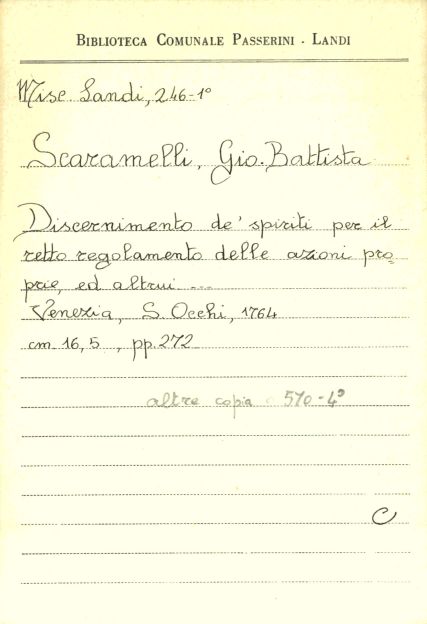 BIBLIOTECA COMUNALE PASSERINI - LANDI
Misc Landi, 246-1°
Scaramelli, Gio. Battista
Discernimento de' spiriti per il
retto regolamento delle azioni pro=
prie, ed altrui ...
Venezia, S. Occhi, 1764
cm 16,5, pp. 272
altre copia 510-4°
C